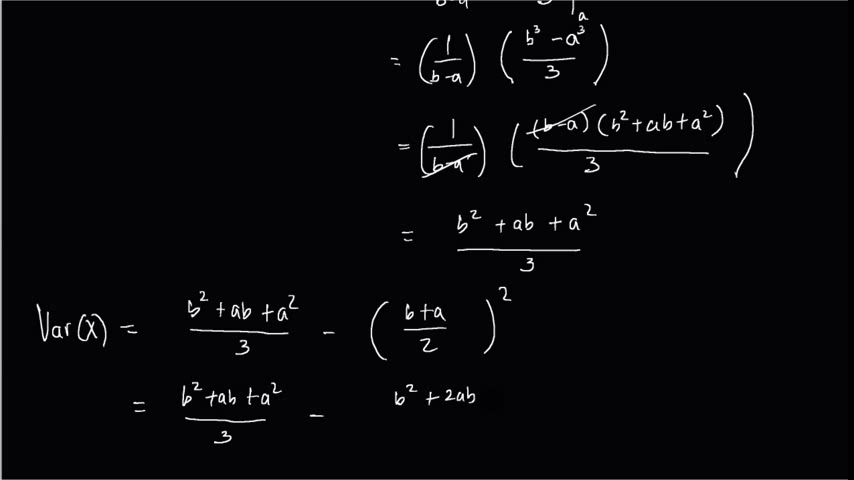 b-a 3 |a
= (1/(b-a)) ((b³-a³)/3)
= (1/(b-a)) ((b-a)(b²+ab+a²)/3)
= (b²+ab+a²)/3
Var(X) = (b²+ab+a²)/3 - ((b+a)/2)²
= (b²+ab+a²)/3 - b²+2ab